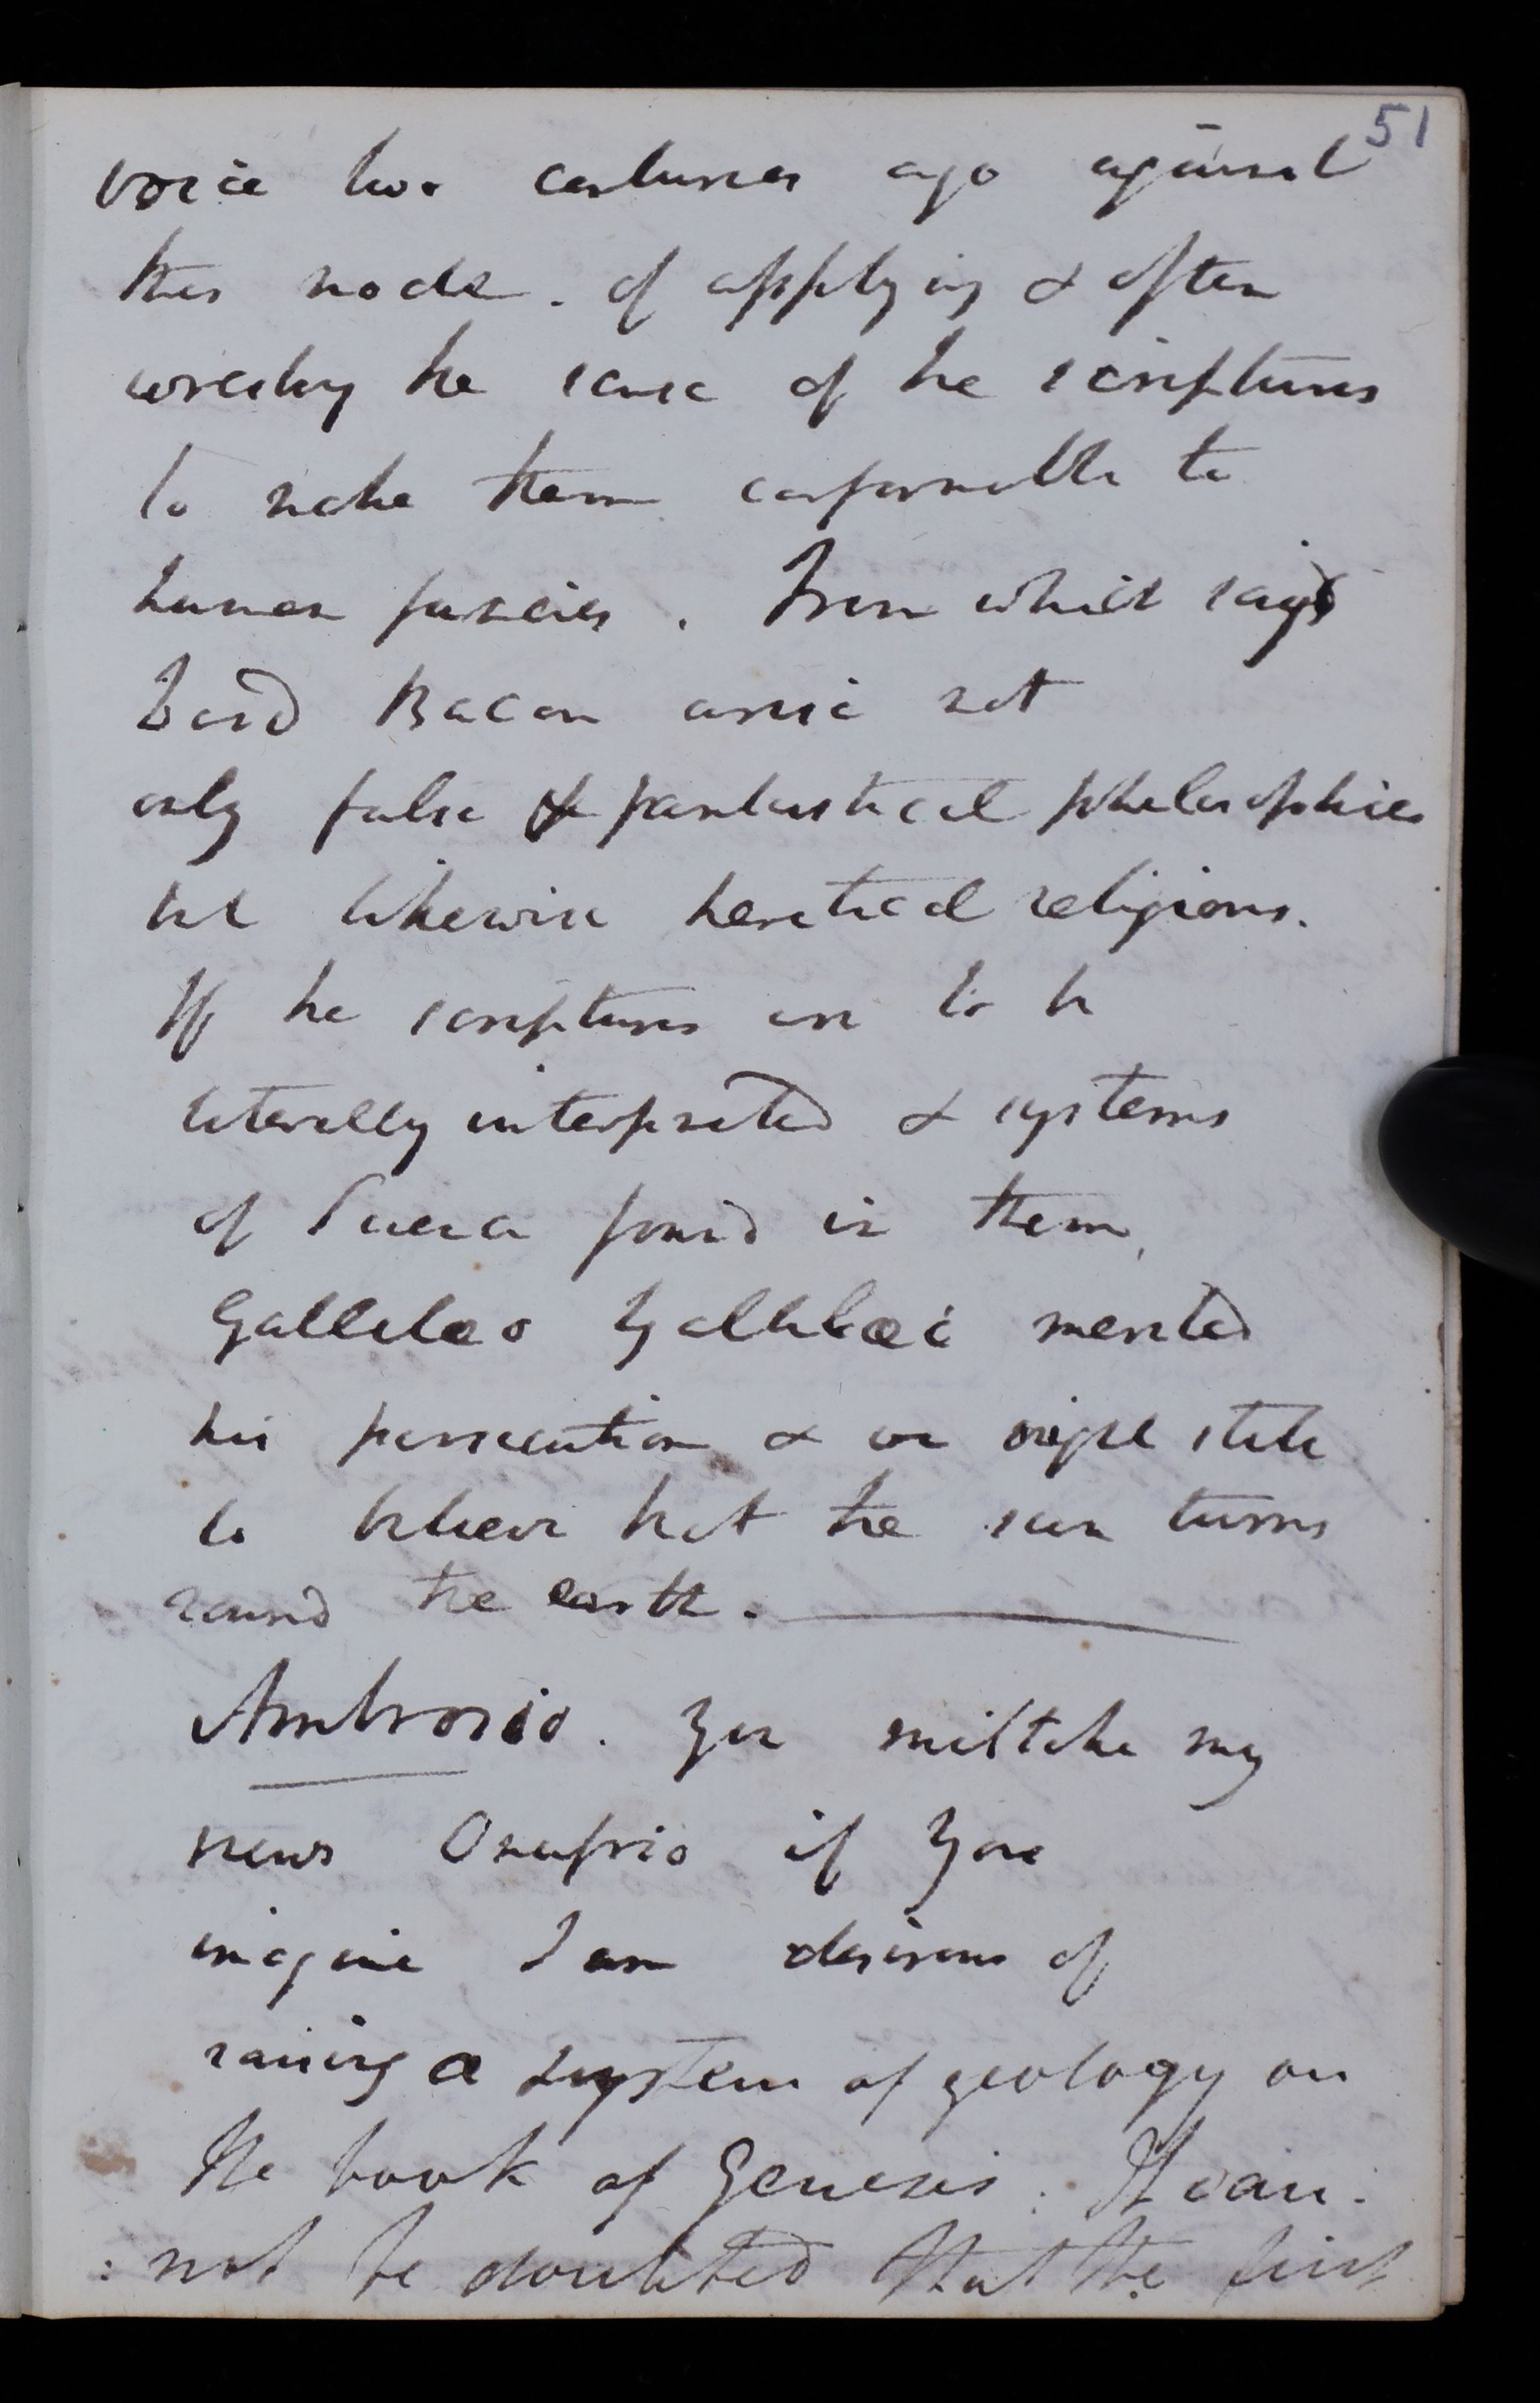 51
voice two centuries ago against
this mode of applying & often
wresting the sense of the scriptures
to make them conformable to
human fancies. From which says
Lord Bacon arise not
only false & fantastical philosophies
but likewise heretical religions.
If the scriptures are to be
literally interpreted & systems
of Science found in them,
Gallileo Gallilaei merited
his persecution & we ought still
to believe that the sun turns
round the earth.
Ambrosio. You mistake my
views Onuphrio if you
imagine I am desirous of
raising a system of geology on
the book of Genesis. It can-
:not be doubted that the first